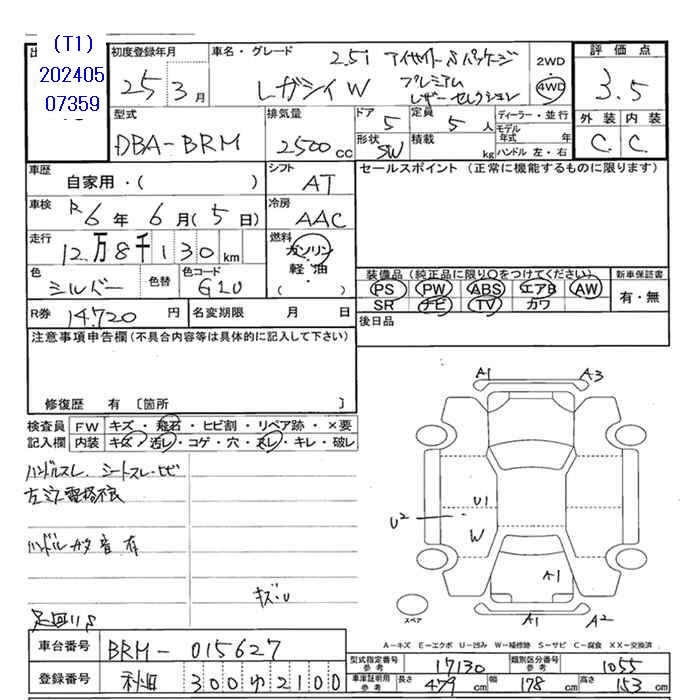 (T1)
202405
07359
初度登録年月
25年 3月
車名・グレード
レガシィW
2.5i アイサイト Sパッケージ
プレミアム
レザーセレクション
2WD
4WD
評価点
3.5
外装 内装
C. C.
型式
DBA-BRM
排気量
2500cc
ドア
5
定員
5人
形状
SW
積載
kg
ディーラー・並行
モデル年式 年
ハンドル 左・右
車歴
自家用・( )
シフト
AT
セールスポイント (正常に機能するものに限ります)
車検
R6年 6月(5日)
冷房
AAC
走行
12万8千130km
燃料
ガソリン
軽・油
・
( )
色
シルバー
色替
色コード
G1U
装備品(純正品に限り○をつけてください)
PS PW ABS エアB AW
SR ナビ TV カワ
新車保証書
有・無
R券 14.720円
名変期限 月 日
後日品
注意事項申告欄(不具合内容等は具体的に記入して下さい)
修復歴 有 〔箇所 〕
検査員
記入欄
FW キズ・飛石・ヒビ割・リペア跡・×要
内装 キズ・汚レ・コゲ・穴・スレ・キレ・破レ
ハンドルスレ シートスレ・ヒビ
ハンドル ガタ 音 有
キズ・U
A1 A3
U1
U2
W
A1
スペア
A1 A2
車台番号 BRM-015627
A－キズ E－エクボ U－凹み W－補修跡 S－サビ C－腐食 XX－交換済
登録番号 秋田 300 ゆ 2100
型式指定番号 参考 17130
類別区分番号 参考 1055
車庫証明用 参考 長さ 479cm 幅 178cm 高さ 153cm